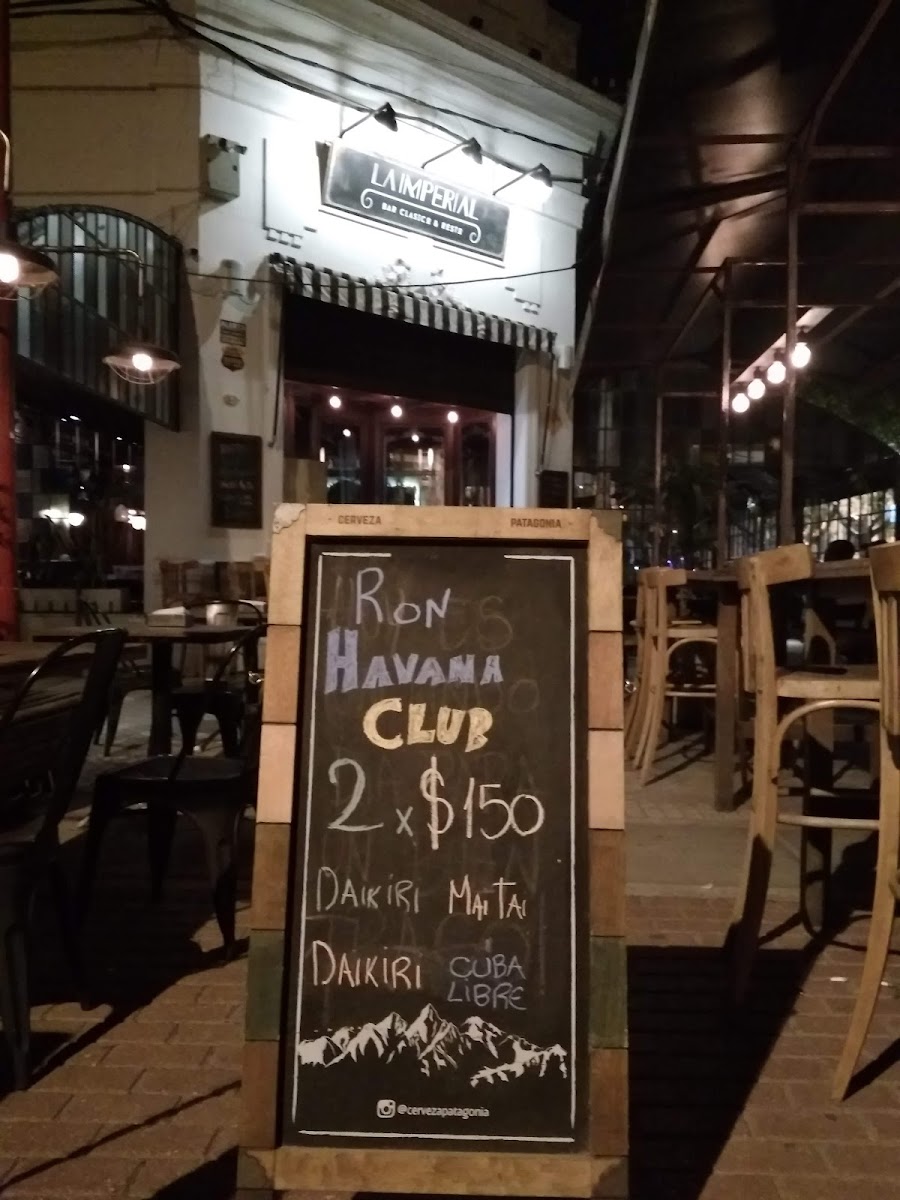 LA IMPERIAL
BAR CLASICO & RESTO
CERVEZA PATAGONIA
RON
HAVANA
CLUB
2 x $150
DAIKIRI MAI TAI
DAIKIRI CUBA
LIBRE
@cervezapatagonia